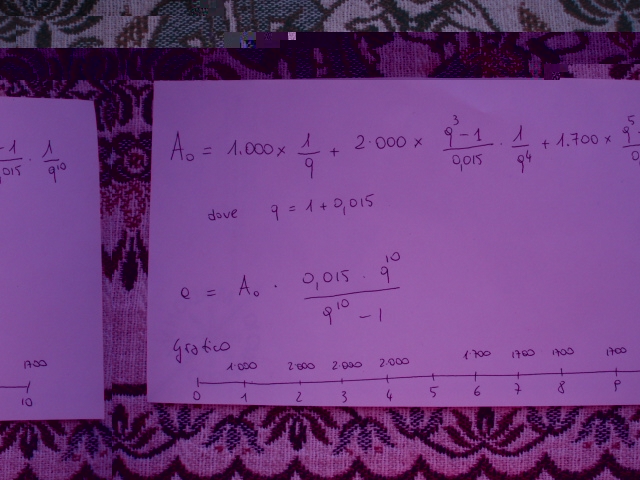 -1/,015 · 1/q¹⁰
1700
10
A₀ = 1.000 × 1/q + 2.000 × (q³-1)/0,015 · 1/q⁴ + 1.700 × q⁵/0,
dove q = 1 + 0,015
e = A₀ · (0,015 · q¹⁰)/(q¹⁰ - 1)
Grafico
1.000 2.000 2.000 2.000 1.700 1700 1700 1700
0 1 2 3 4 5 6 7 8 9